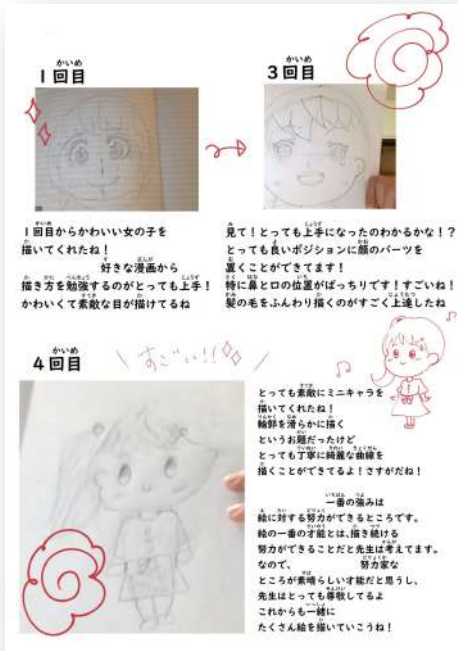 1回目
かいめ
3回目
かいめ
1回目からかわいい女の子を
描いてくれたね！
好きな漫画から
描き方を勉強するのがとっても上手！
かわいくて素敵な目が描けてるね
見て！とっても上手になったのわかるかな！？
とっても良いポジションに顔のパーツを
置くことができてます！
特に鼻と口の位置がばっちりです！すごいね！
髪の毛をふんわり描くのがすごく上達したね
4回目
かいめ
すごい!!
とっても素敵にミニキャラを
描いてくれたね！
輪郭を滑らかに描く
というお題だったけど
とっても丁寧に綺麗な曲線を
描くことができてるよ！さすがだね！
一番の強みは
絵に対する努力ができるところです。
絵の一番の才能とは、描き続ける
努力ができることだと先生は考えてます。
なので、 努力家な
ところが素晴らしい才能だと思うし、
先生はとっても尊敬してるよ
これからも一緒に
たくさん絵を描いていこうね！